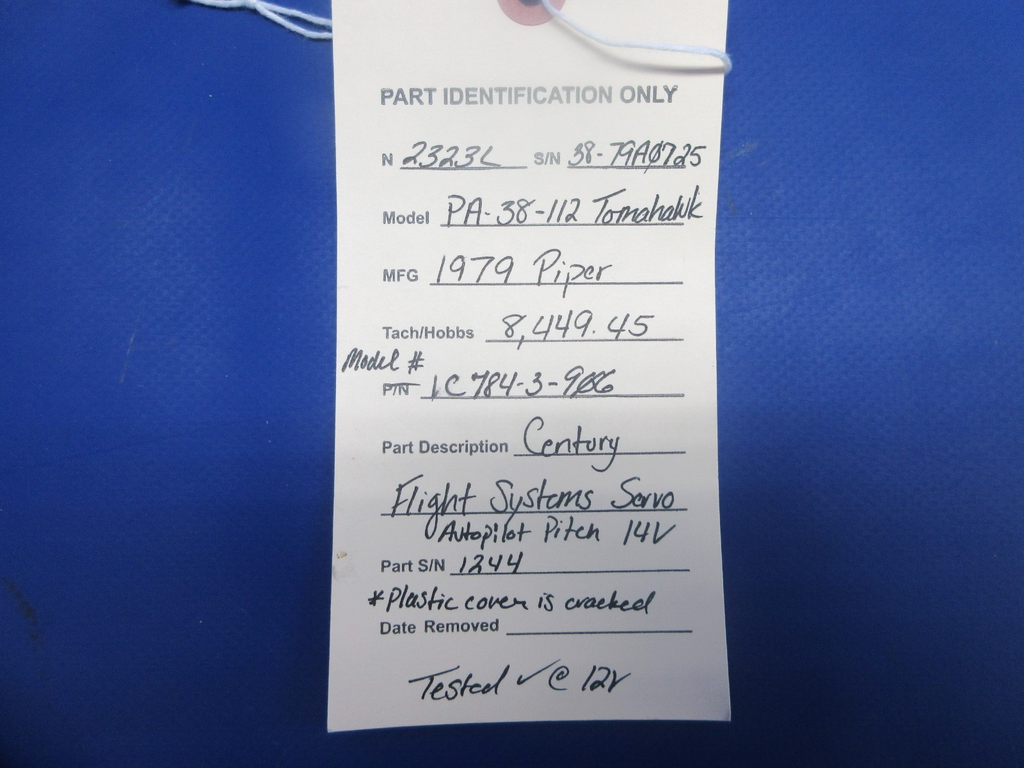 PART IDENTIFICATION ONLY
N 2323L S/N 38-79A0725
Model PA-38-112 Tomahawk
MFG 1979 Piper
Tach/Hobbs 8,449.45
Model #
P/N 1C784-3-906
Part Description Century
Flight Systems Servo
Autopilot Pitch 14V
Part S/N 1244
*Plastic cover is cracked
Date Removed
Tested ✓ @ 12V